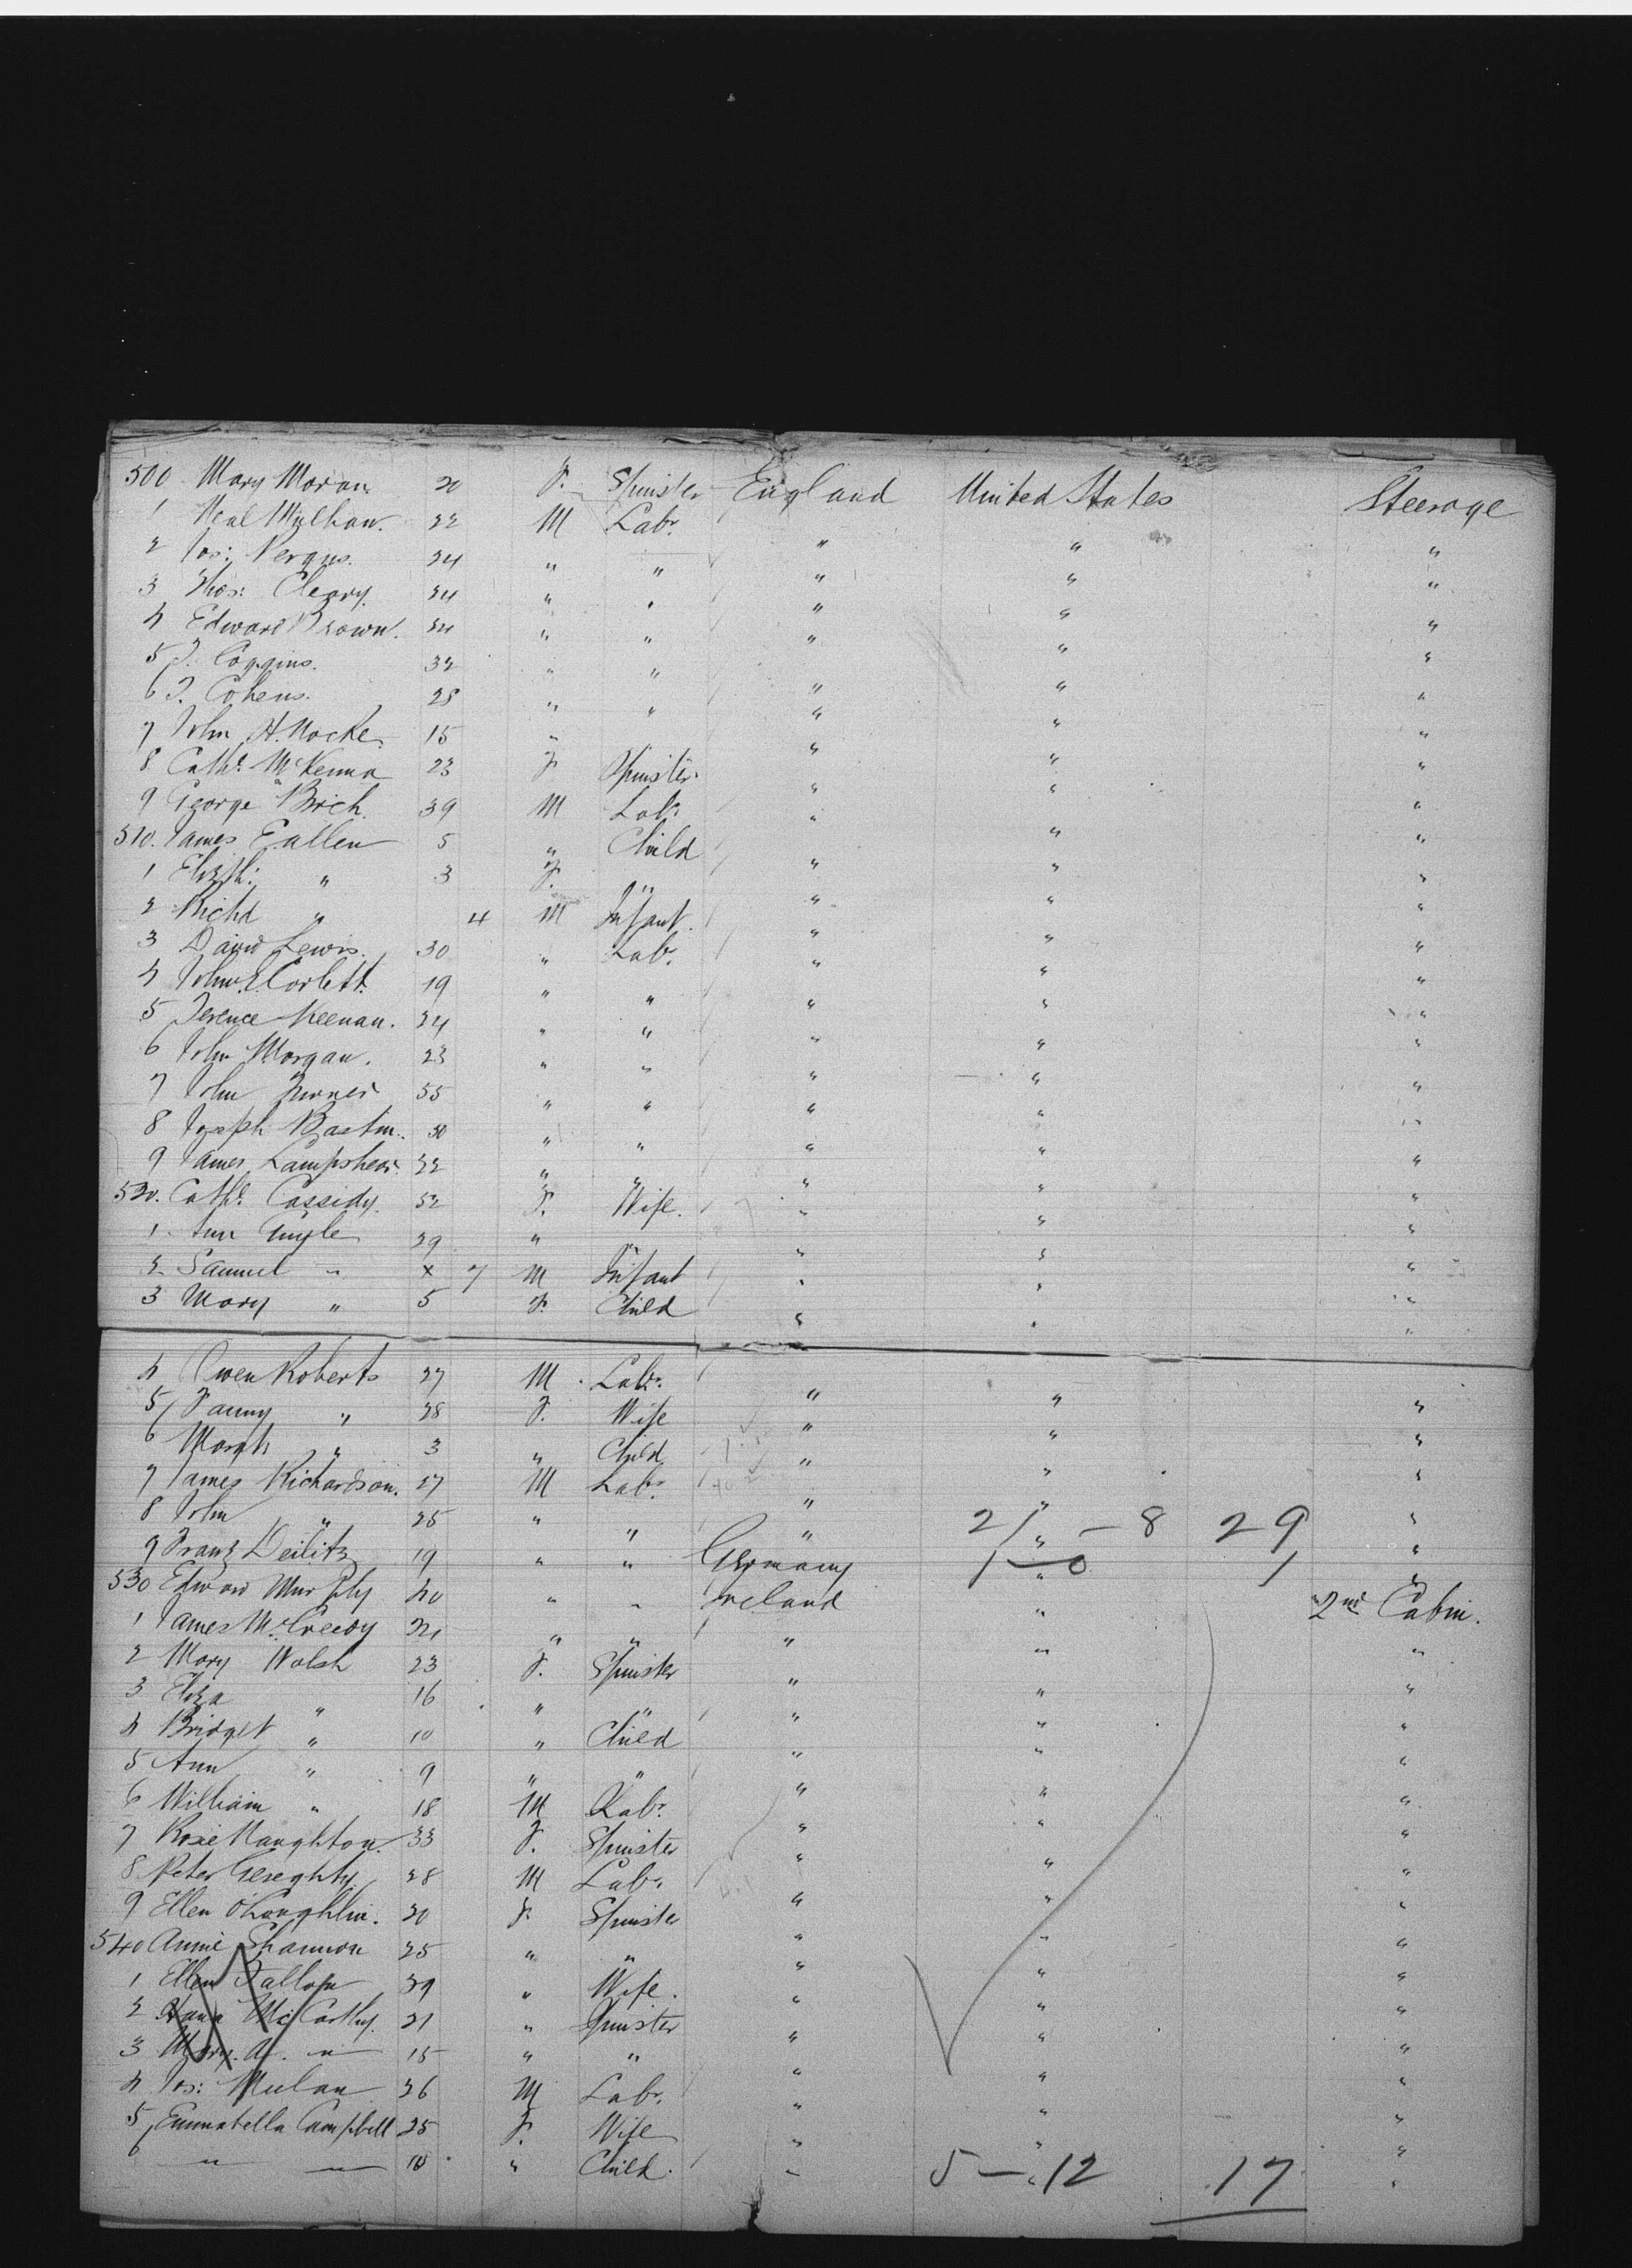 500 Mary Moran 20 F. Spinster England United States Steerage
1 Neal 22 M Labr.
2 Jos: 24 " " " " "
3 Thos: Cleary 24 " " " " "
4 Edward Brown. 24 " " " " "
5 J. Coggins. 32 " " " " "
6 J. Cohens. 28 " " " " "
7 John H. 15 " " " "
8 Cathe. McKenna 23 F Spinster " " "
9 George Birch 39 M Labr. " " "
510. James Callen 5 " Child " " "
1 Elizth: " 3 F. " " " "
2 Richd " 4 M Infant. " " "
3 David Lewis. 30 " Labr. " " "
4 John E. Corlett. 19 " " " " "
5 Terence Keenan. 24 " " " " "
6 John Morgan. 23 " " " " "
7 John Turner 55 " " " " "
8 Joseph Bastin. 30 " " " " "
9 James Lampshear. 22 " " " " "
520. Cathe. Cassidy. 52 F. Wife. " " "
1. Ann 29 " " " " "
2 Samuel " x 7 M Infant " " "
3 Mary " 5 F. Child " " "
4 Owen Roberts 27 M Labr. " " "
5 Fanny " 28 F. Wife " " "
6 Margt. " 3 " Child " " "
7 James Richardson. 27 M Labr. " " "
8 John " 25 " " " 21 " – 8 29 "
9 Franz Deilitz 19 " " Germany 1 – 0 1 "
530 Edward Murphy 40 " " Ireland " 2nd Cabin.
1 James McCreedy 21 " " " " "
2 Mary Walsh 23 F. Spinster " " "
3 Eliza " 16 " " " " "
4 Bridget " 10 " Child " " "
5 Ann " 9 " " " " "
6 William " 18 M Labr. " " "
7 Rose Naughton. 33 F. Spinster " " "
8 Peter Geraghty. 28 M Labr. " " "
9 Ellen O'Loughlin. 20 F. Spinster " " "
540 Annie Shannon 25 " " " " "
1 Ellen Fallon 39 " Wife. " " "
2 Hana McCarthy. 21 " Spinster " " "
3 Mary. A. " 15 " " " " "
4 Jos: Mulan 26 M Labr. " " "
5 Emmabella Campbell 25 F. Wife " " "
6 " " 10 " Child. " 5 – " 12 17 "